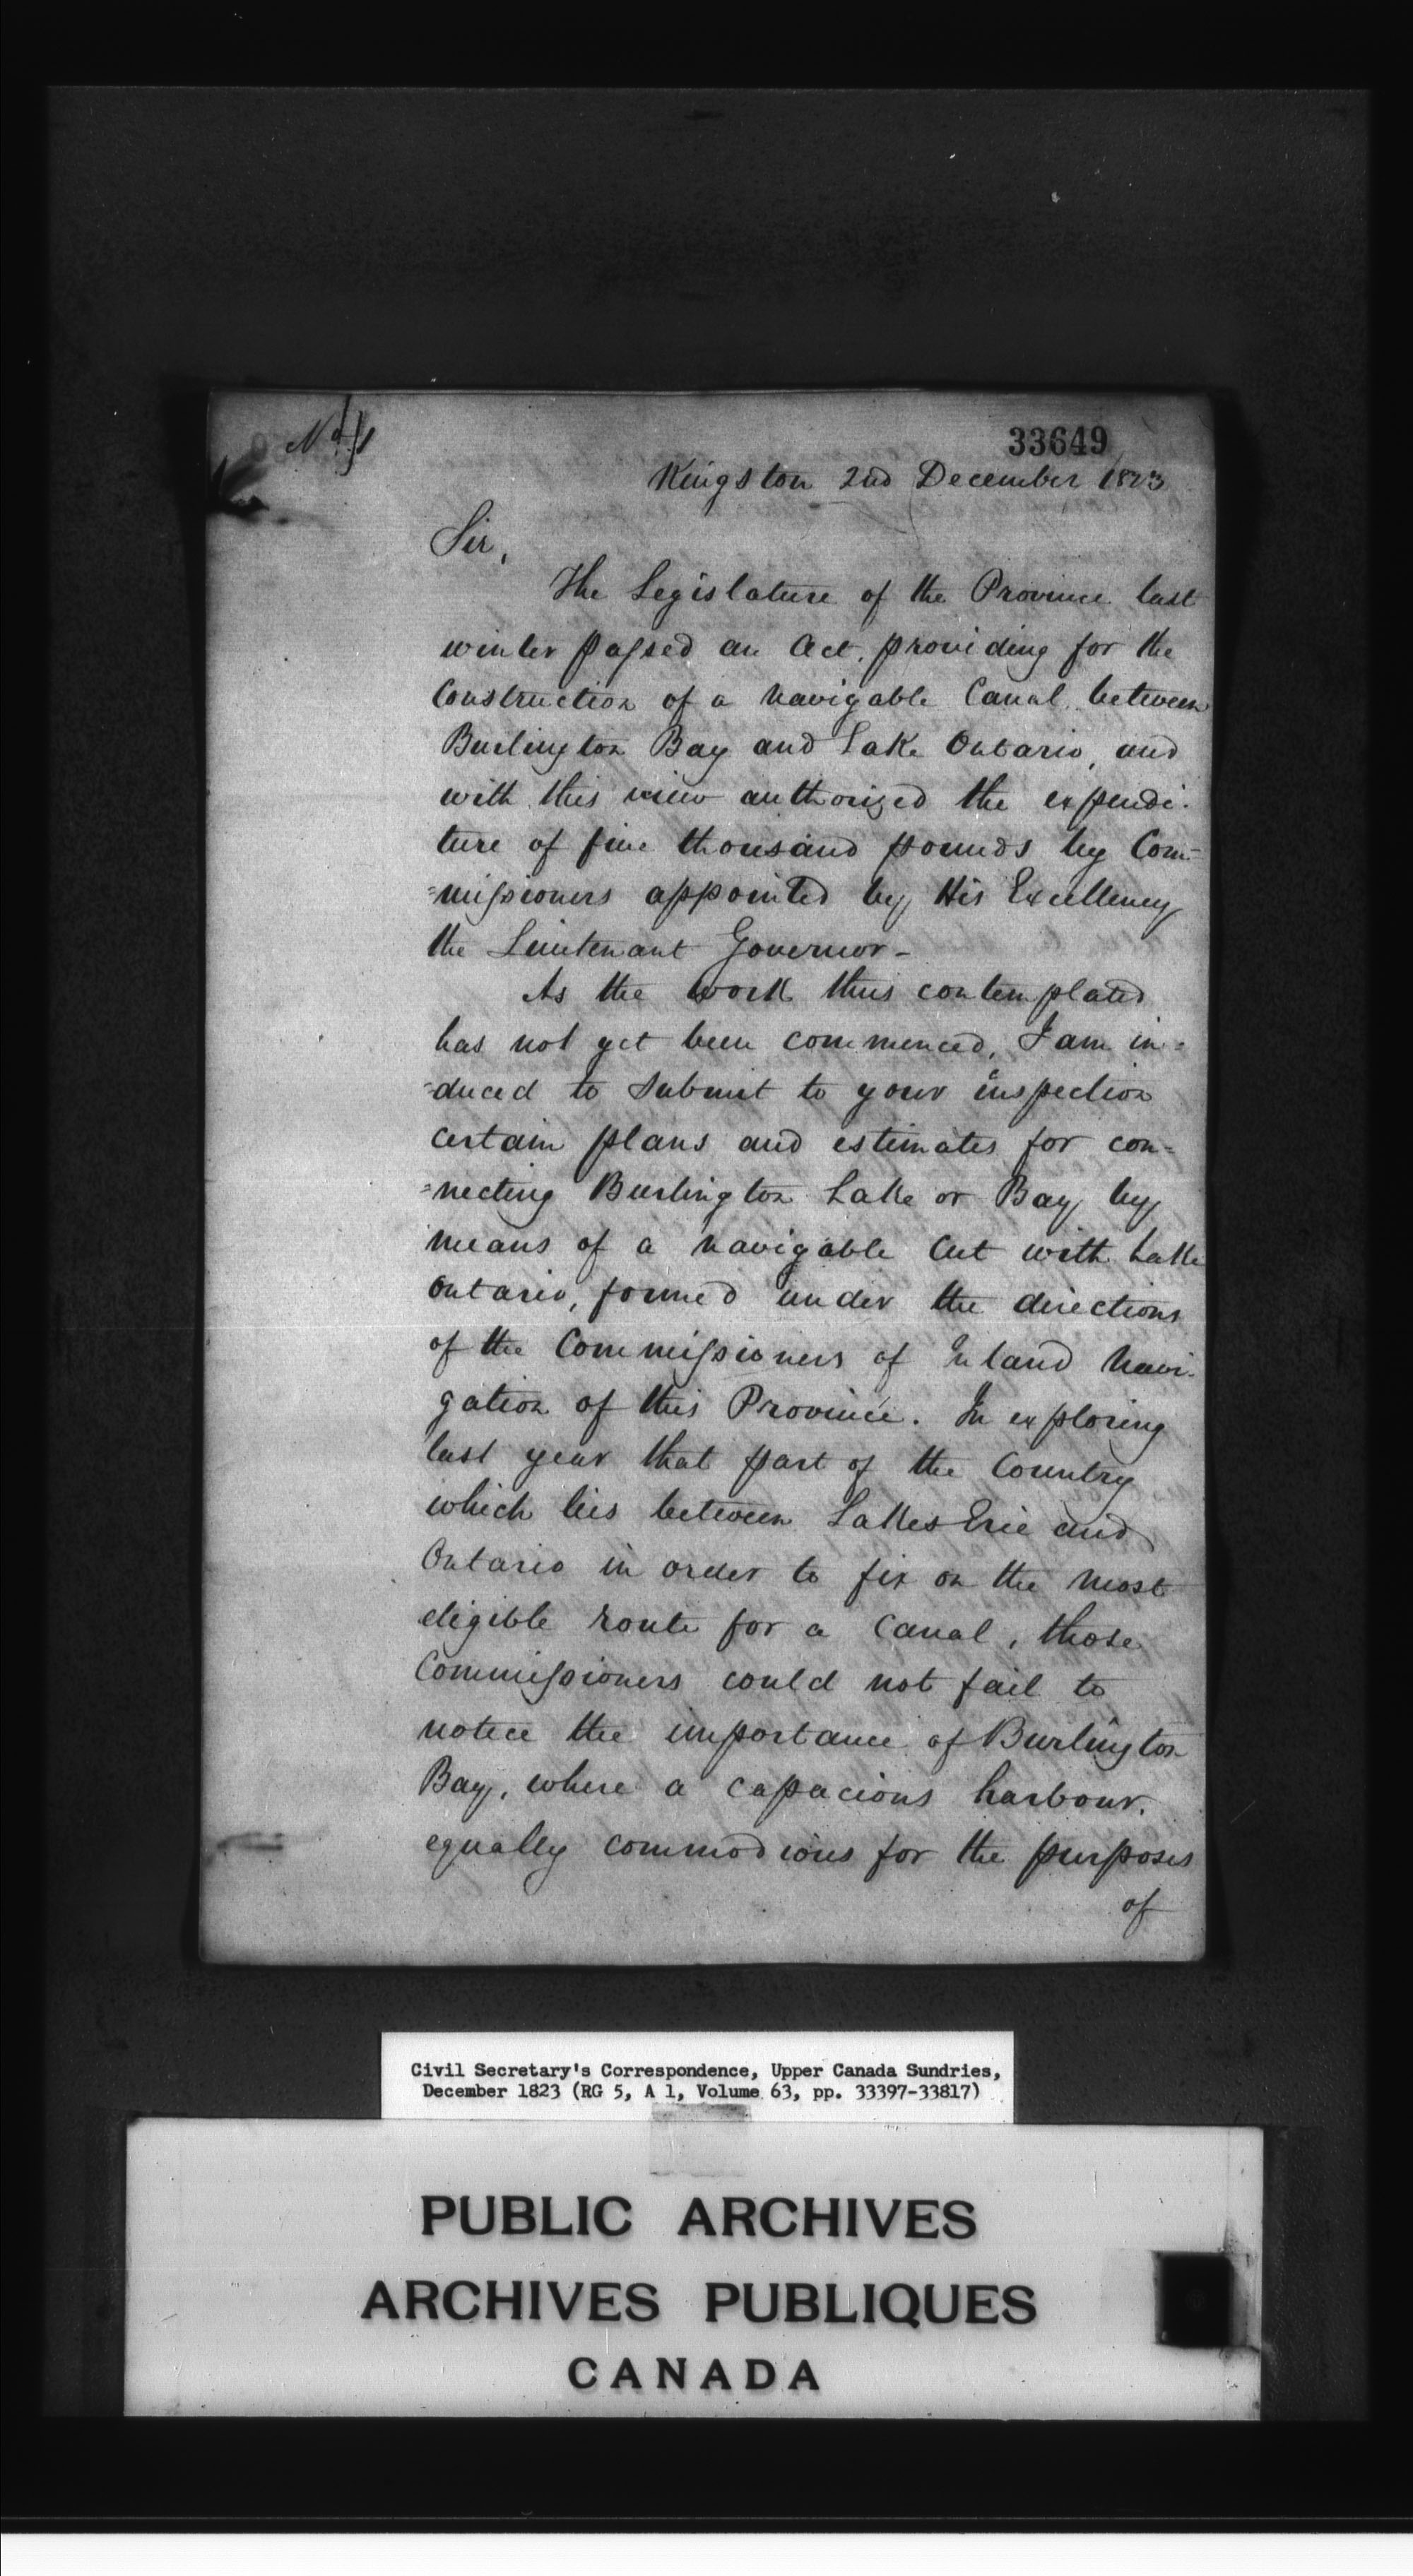 33649
Kingston 2nd December 1823
Sir,
The Legislature of the Province last
winter passed an Act, providing for the
Construction of a navigable Canal between
Burlington Bay and Lake Ontario, and
with this view authorized the expendi-
ture of five thousand pounds by Com=
=missioners appointed by His Excellency
the Lieutenant Governor -
As the work thus contemplated
has not yet been commenced, I am in=
=duced to submit to your inspection
certain plans and estimates for con=
=necting Burlington Lake or Bay by
means of a navigable Cut with Lake
Ontario, formed under the directions
of the Commissioners of Inland Navi-
gation of this Province. In exploring
last year that part of the Country
which lies between Lakes Erie and
Ontario in order to fix on the most
eligible route for a Canal, those
Commissioners could not fail to
notice the importance of Burlington
Bay, where a capacious harbour,
equally commodious for the purposes
of
Civil Secretary's Correspondence, Upper Canada Sundries,
December 1823 (RG 5, A 1, Volume 63, pp. 33397-33817)
PUBLIC ARCHIVES
ARCHIVES PUBLIQUES
CANADA